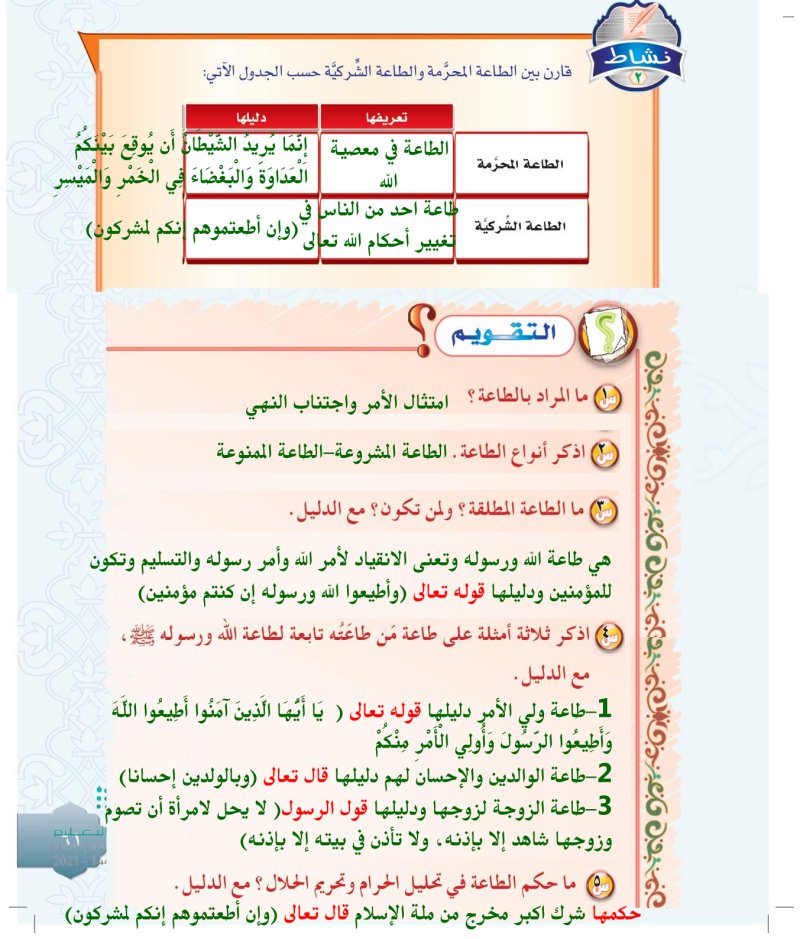 نشاط
٢
قارن بين الطاعة المحرَّمة والطاعة الشِّركيَّة حسب الجدول الآتي:
تعريفها دليلها
الطاعة المحرَّمة
الطاعة في معصية
الله
إِنَّمَا يُرِيدُ الشَّيْطَانُ أَن يُوقِعَ بَيْنَكُمُ
الْعَدَاوَةَ وَالْبَغْضَاءَ فِي الْخَمْرِ وَالْمَيْسِرِ
الطاعة الشِّركيَّة
طاعة احد من الناس في
تغيير أحكام الله تعالى
(وإن أطعتموهم إنكم لمشركون)
التقويم
س١ ما المراد بالطاعة؟ امتثال الأمر واجتناب النهي
س٢ اذكر أنواع الطاعة. الطاعة المشروعة-الطاعة الممنوعة
س٣ ما الطاعة المطلقة؟ ولمن تكون؟ مع الدليل.
هي طاعة الله ورسوله وتعنى الانقياد لأمر الله وأمر رسوله والتسليم وتكون
للمؤمنين ودليلها قوله تعالى (وأطيعوا الله ورسوله إن كنتم مؤمنين)
س٤ اذكر ثلاثة أمثلة على طاعة مَن طاعَتُه تابعة لطاعة الله ورسوله ﷺ،
مع الدليل.
1-طاعة ولي الأمر دليلها قوله تعالى ( يَا أَيُّهَا الَّذِينَ آمَنُوا أَطِيعُوا اللَّهَ
وَأَطِيعُوا الرَّسُولَ وَأُولِي الْأَمْرِ مِنْكُمْ
2-طاعة الوالدين والإحسان لهم دليلها قال تعالى (وبالولدين إحسانا)
3-طاعة الزوجة لزوجها ودليلها قول الرسول( لا يحل لامرأة أن تصوم
وزوجها شاهد إلا بإذنه، ولا تأذن في بيته إلا بإذنه)
س٥ ما حكم الطاعة في تحليل الحرام وتحريم الحلال؟ مع الدليل.
حكمها شرك اكبر مخرج من ملة الإسلام قال تعالى (وإن أطعتموهم إنكم لمشركون)
٦١